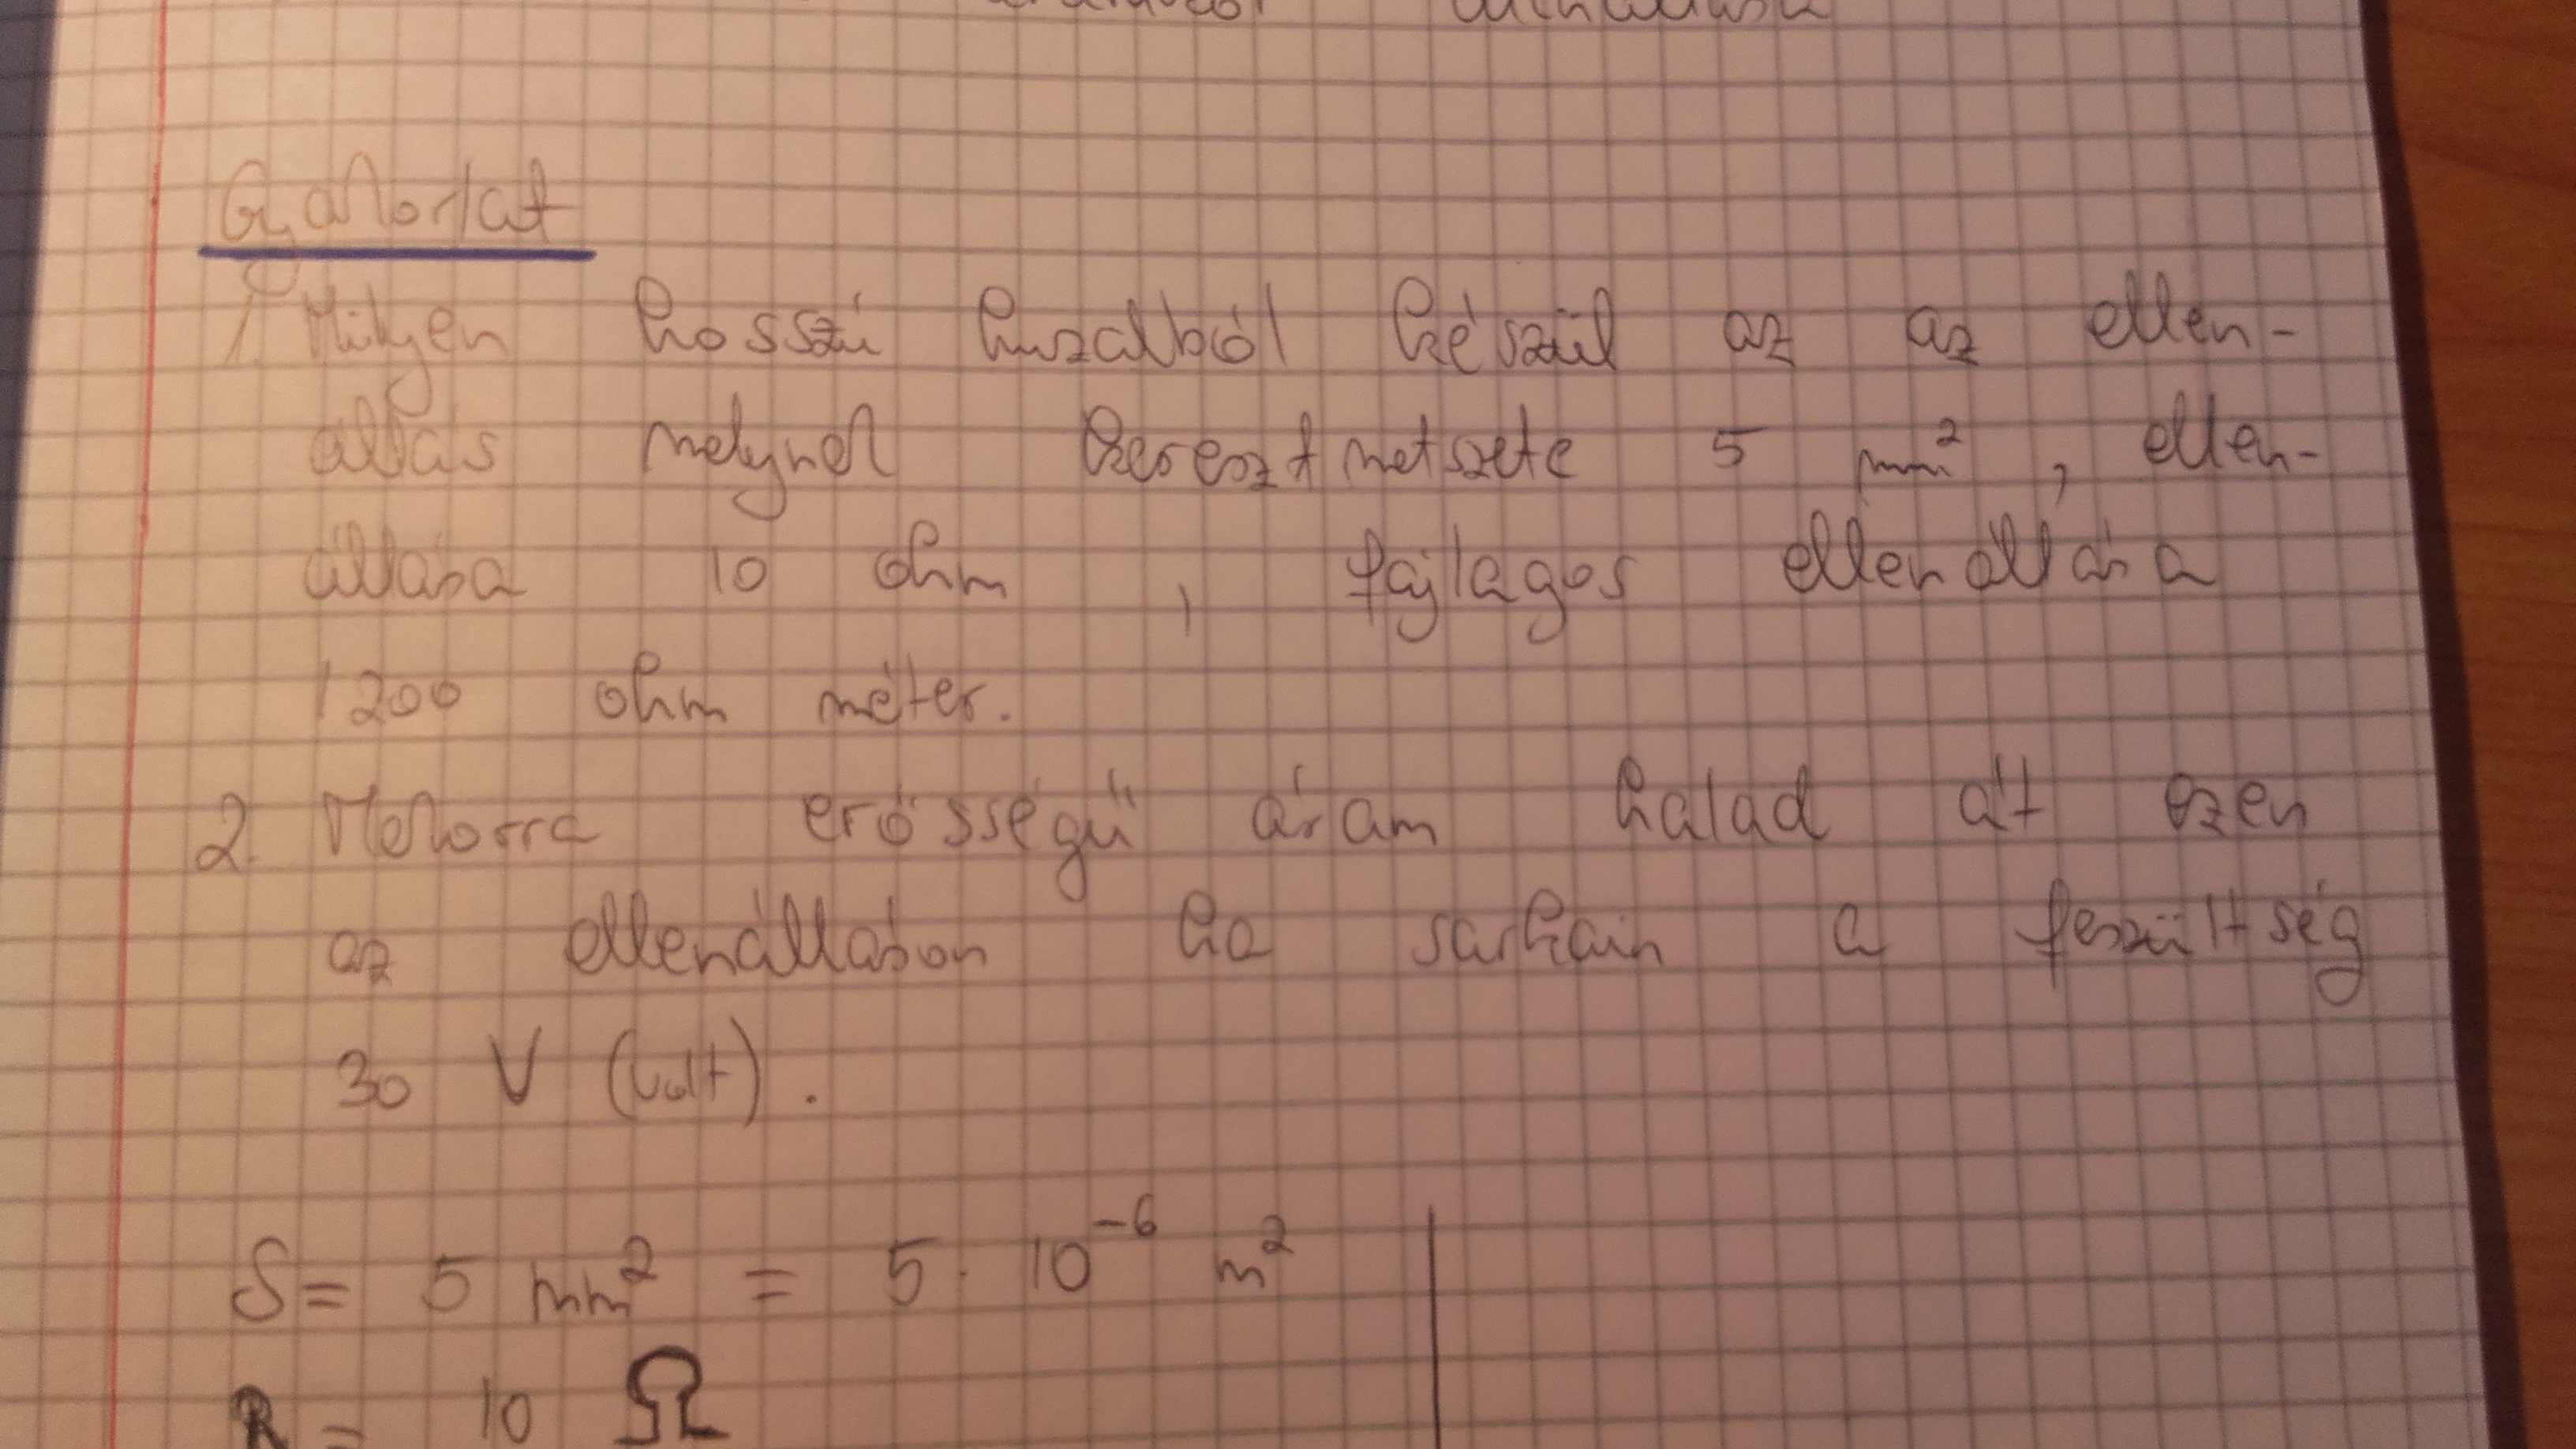 Gyakorlat
1. Milyen hosszú huzalból készül az az ellen-
állás melynek keresztmetszete 5 mm², ellen-
állása 10 ohm, fajlagos ellenállása
1200 ohm méter.
2. Mekorra erősségű áram halad át ezen
az ellenálláson ha sarkain a feszültség
30 V (volt).
S = 5 mm² = 5 · 10⁻⁶ m²
R = 10 Ω